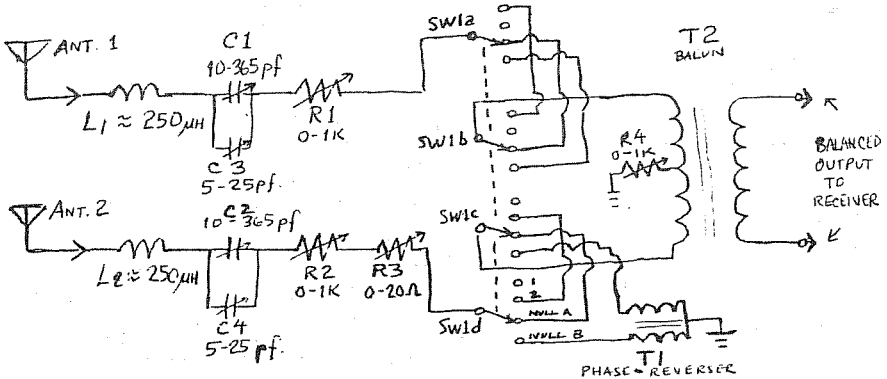 ANT. 1
C1
10-365pf
L1 ≈ 250μH
R1
0-1K
C3
5-25pf.
SW1a
SW1b
T2
BALUN
R4
0-1K
BALANCED
OUTPUT
TO
RECEIVER
ANT. 2
C2
10-365pf
L2 ≈ 250μH
R2
0-1K
R3
0-20Ω
C4
5-25 pf.
SW1c
SW1d
1
2
NULL A
NULL B
T1
PHASE-REVERSER